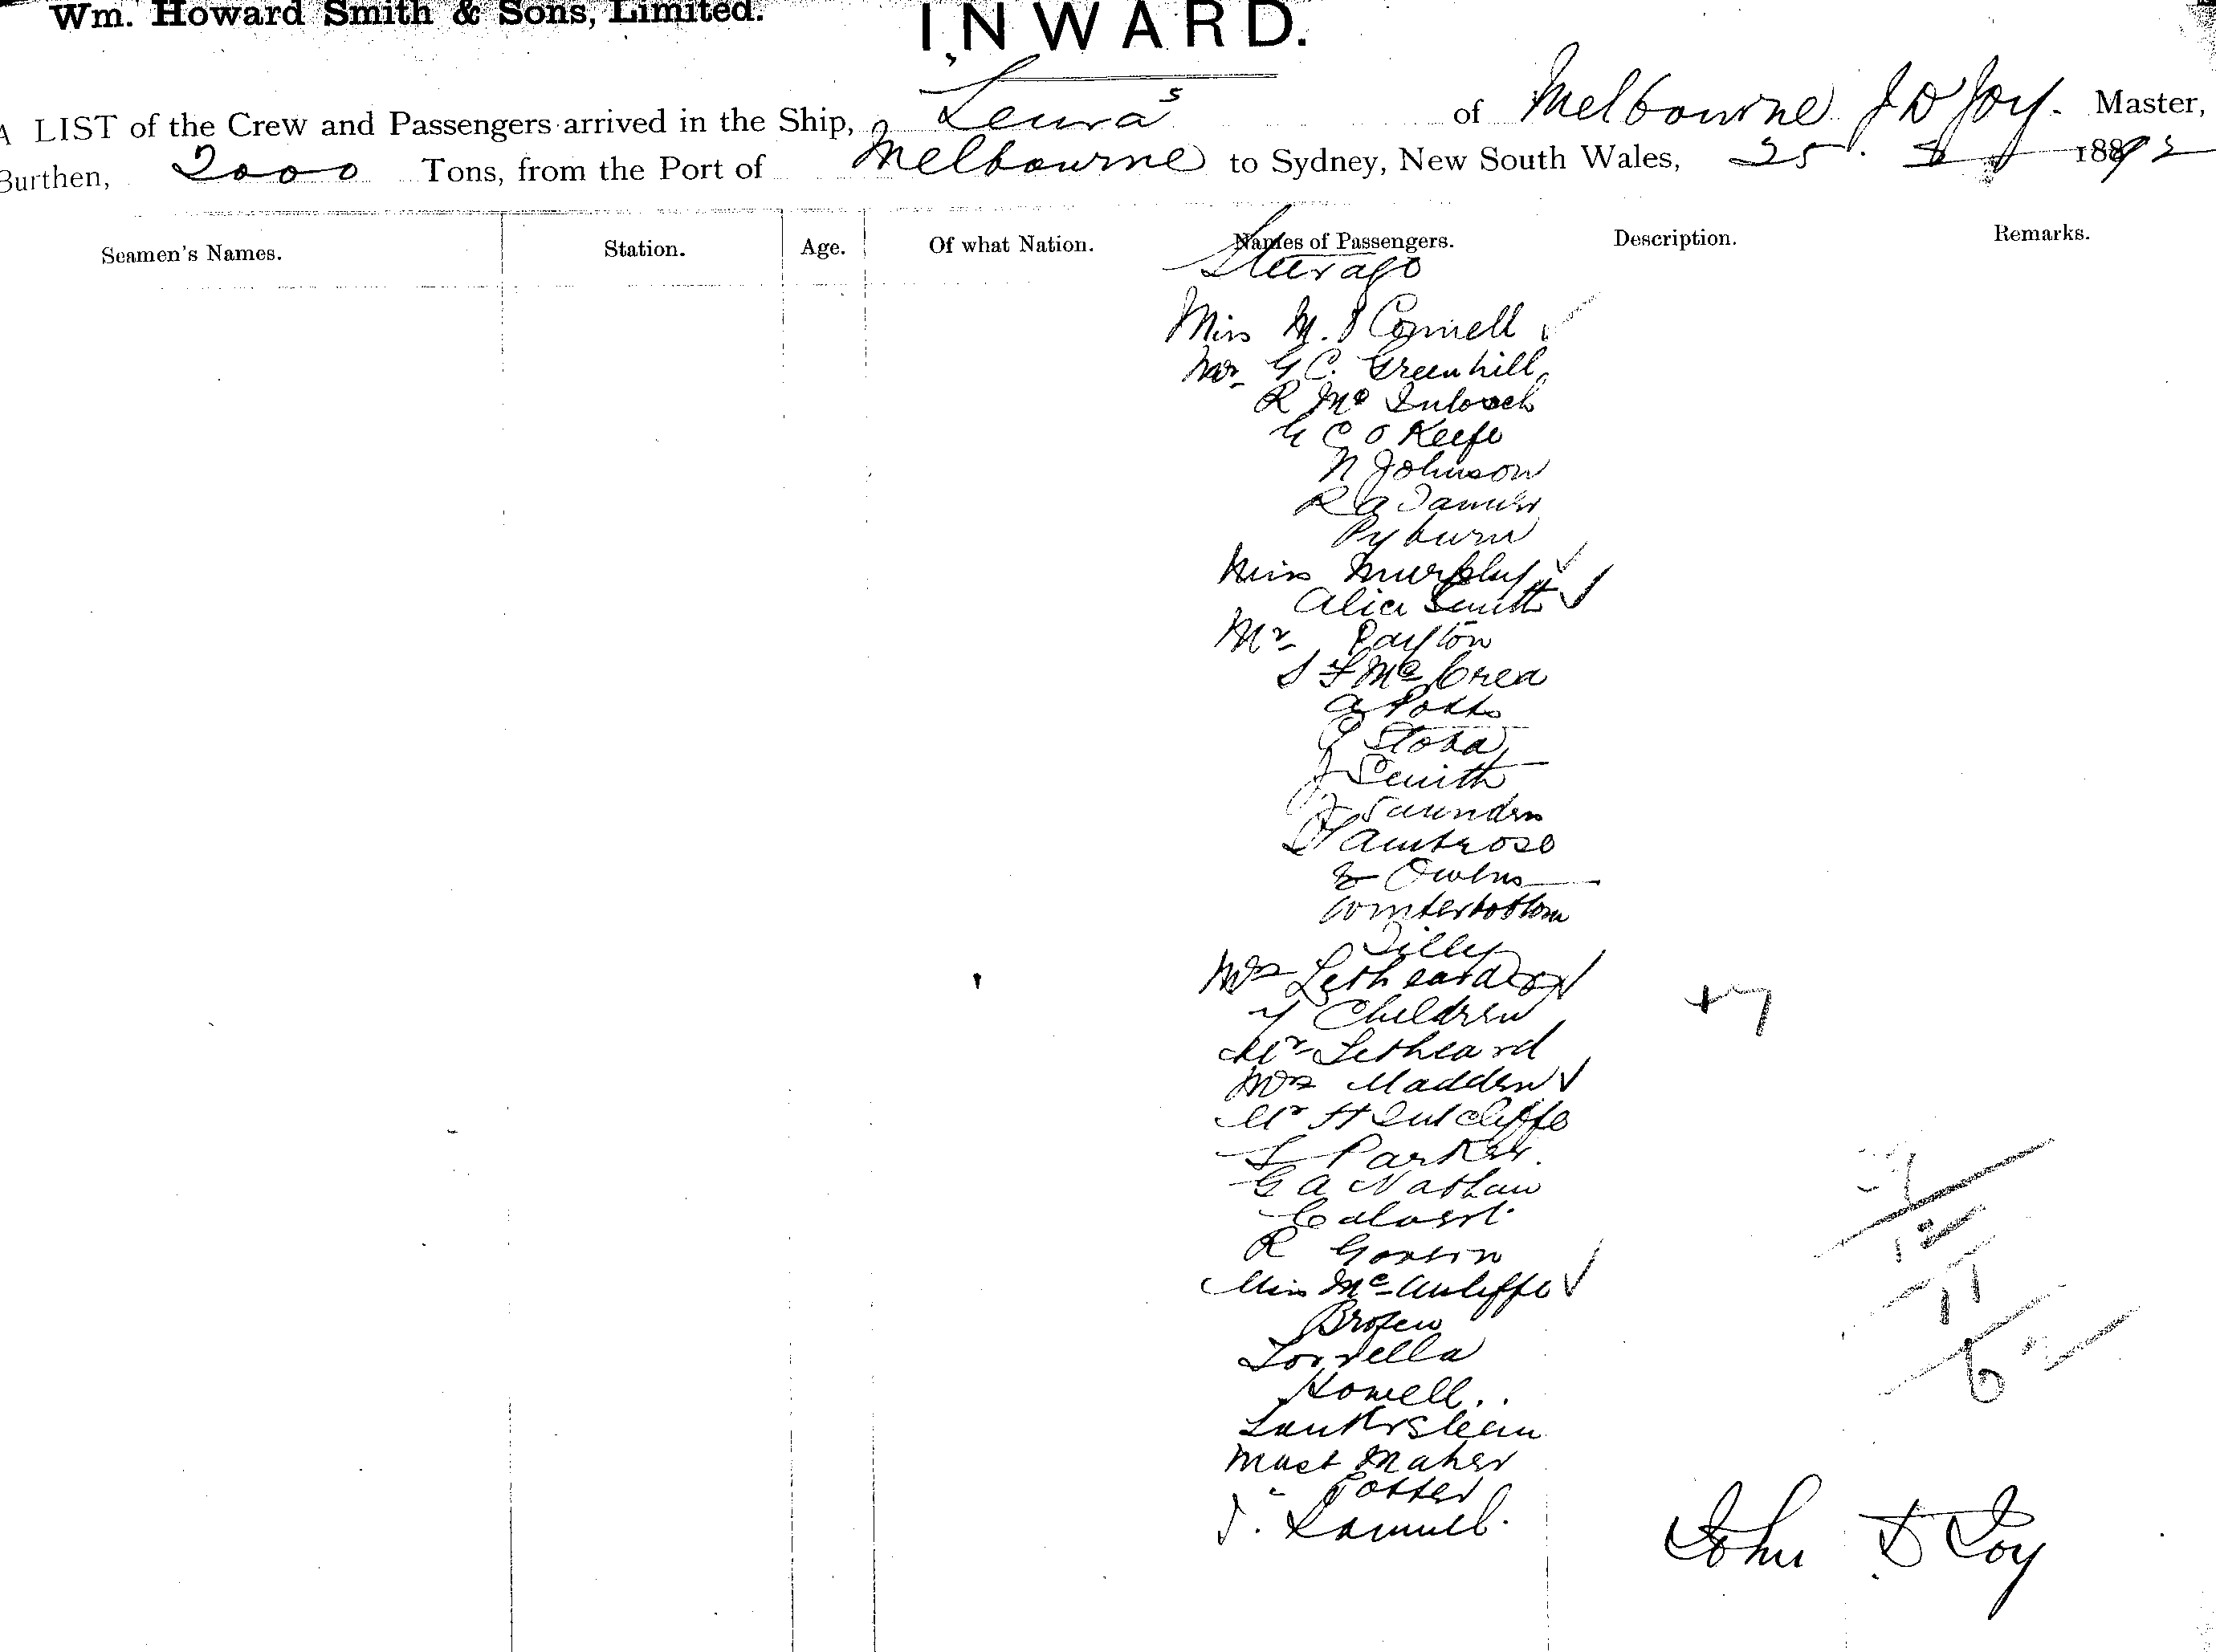 Wm. Howard Smith & Sons, Limited.
INWARD.
A LIST of the Crew and Passengers arrived in the Ship, Leura s of Melbourne J D Joy. Master,
Burthen, 2000 Tons, from the Port of Melbourne to Sydney, New South Wales, 25. 8 1892
Seamen's Names. Station. Age. Of what Nation. Names of Passengers. Description. Remarks.
Steerage
Miss M. Connell ✓
Mr G C. Greenhill
R Mc
G C O Keefe
N Johnson
R A
Pyburn
Miss Murphy ✓
Alice Smith ✓
Mr Payton
S F McCrea
A Potts
Stona
J Smith
Saunders
Ambrose
E Owens
Winterbottom
Tilly
Mrs Letheard & ✓
7 Children +7
Mr Letheard
Mrs Madden ✓
Mr H Sutcliffe
S Parker.
G A Nathan
Calvert
R
Miss McAuliffe ✓
Howell
Mast Maher
" Potter
Samuel.
12
11
John D Joy